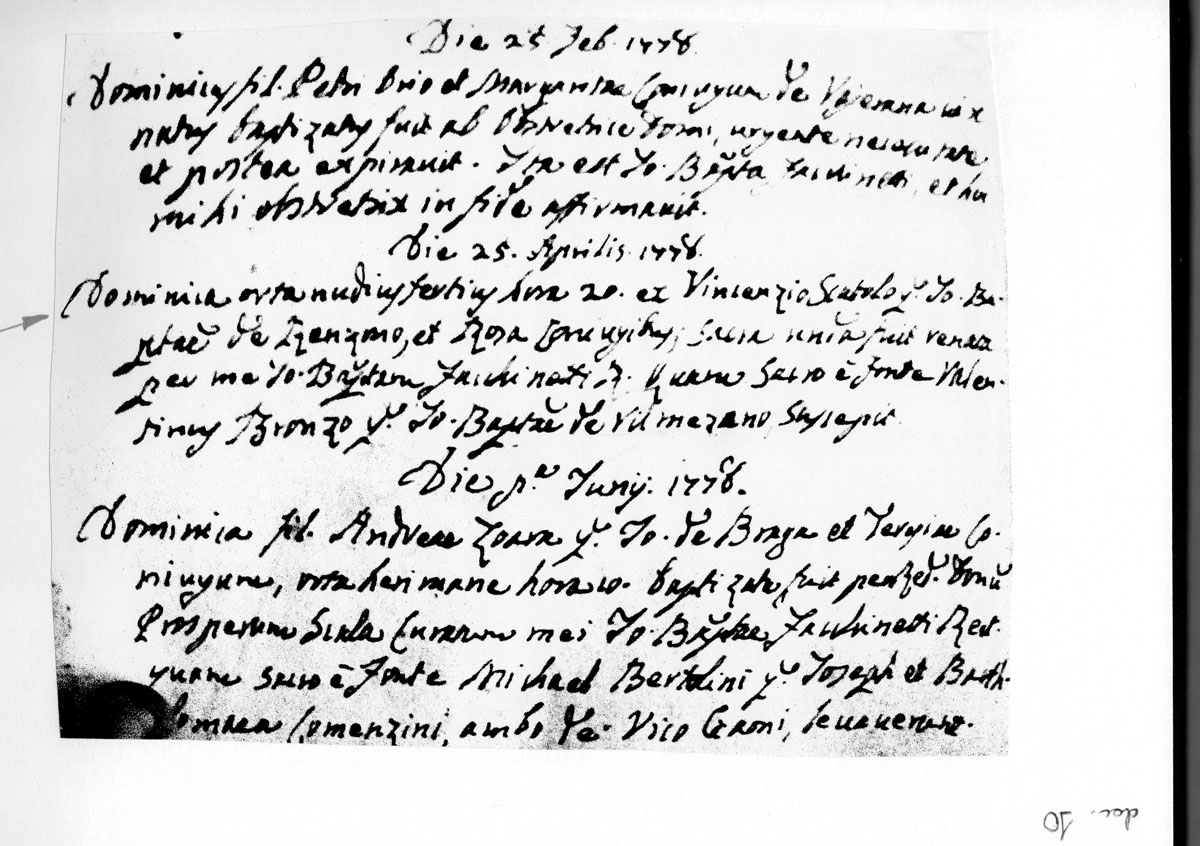 Die 25 Feb. 1778
Dominicus fil. Petri Orio et Margaritae Coniugum de vix
natus baptizatus fuit ab Obstetrice Domi, urgente necessitate
et postea expiravit. Ita est Io. Bapta Facchinetti, et
mihi obstetrix in fide affirmavit.
Die 25. Aprilis 1778.
Dominica orta nudiustertius hora 20. ex Vincenzio Scatolo q. Io. Ba-
ptae de Renzono, et Rosa Coniugibus, sacra fuit
per me Io. Baptam Facchinetti R. Quam Sacro è fonte Valen-
tinus Bronzo q. Io. Baptae de Vilmezano Suscepit
Die pa. Junij. 1778.
Dominica fil. Andreae Zoara q. Io. de Braga et Co-
niugum, orta heri mane hora 10. baptizata fuit per Donum
Prosperum Scala Curatum mei Io. Baptae Facchinetti Rect.
quam sacro è fonte Michael Bertolini q. Joseph et Barth-
lomaea Comenzini, ambo de Vico Caroni, levaverunt.
doc. 10